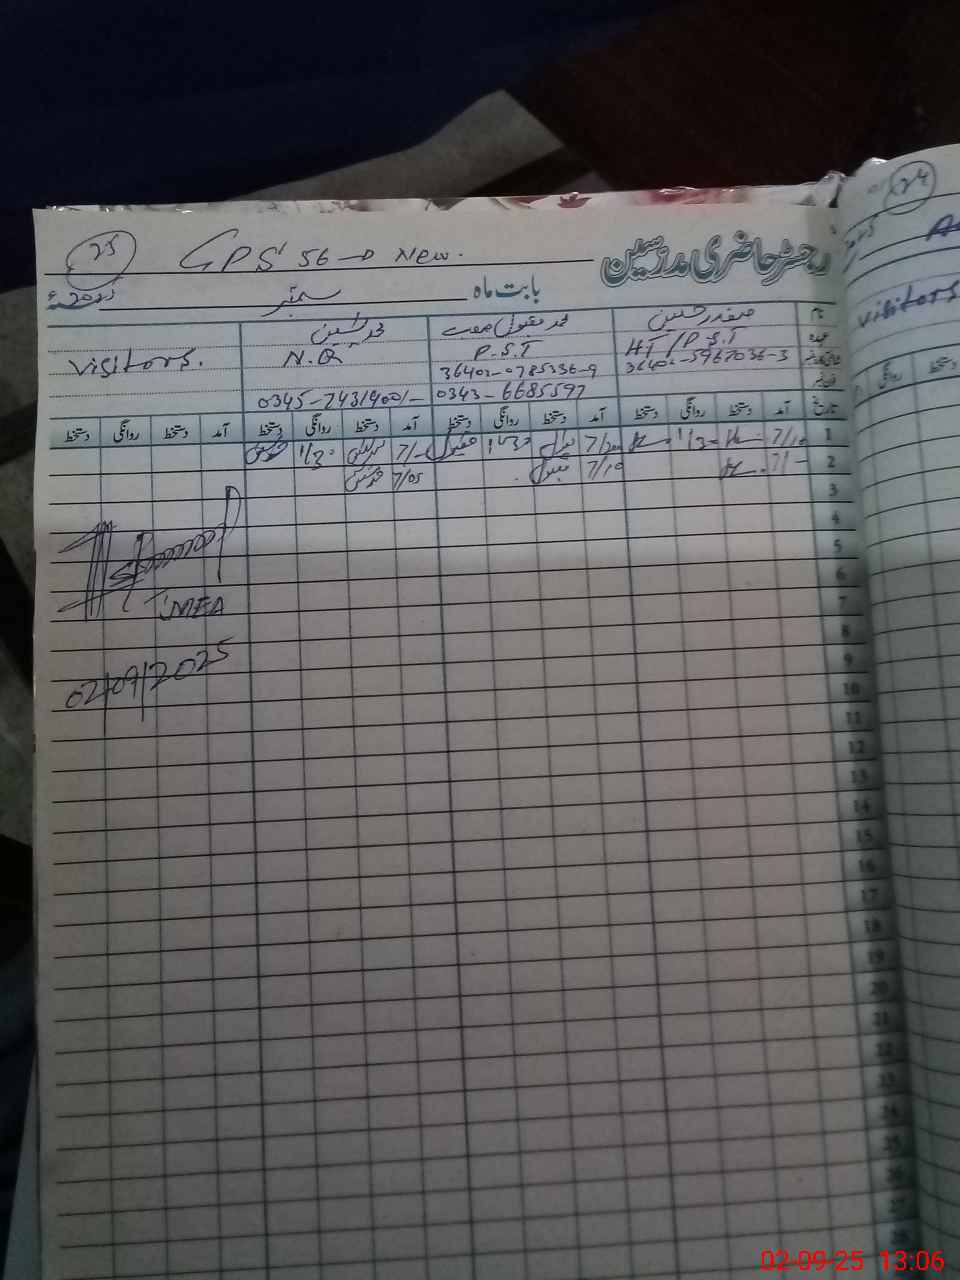 25
GPS 56-D New.
رجسٹر حاضری مدرسین
بابت ماہ ستمبر 2025ء
نام صفدر حسین محمد مقبول محمد یٰسین visitors.
عہدہ HT/P.S.T P.S.T N.Q
شناختی کارڈ نمبر 36402-5967036-3 36402-0785336-9
فون نمبر 0343-6685597 0345-7431400/-
تاریخ آمد دستخط روانگی دستخط آمد دستخط روانگی دستخط آمد دستخط روانگی دستخط آمد دستخط روانگی دستخط
1 7/10 1/30 7/20 مقبول 1/30 مقبول 7/- 1/30
2 7/- 7/10 مقبول 7/05
3
4
5
6
7
8
9
10
11
12
13
14
15
16
17
18
19
20
21
22
23
24
25
26
27
28
MEA
02/09/2025
24
visitors
روانگی دستخط
02-09-25 13:06